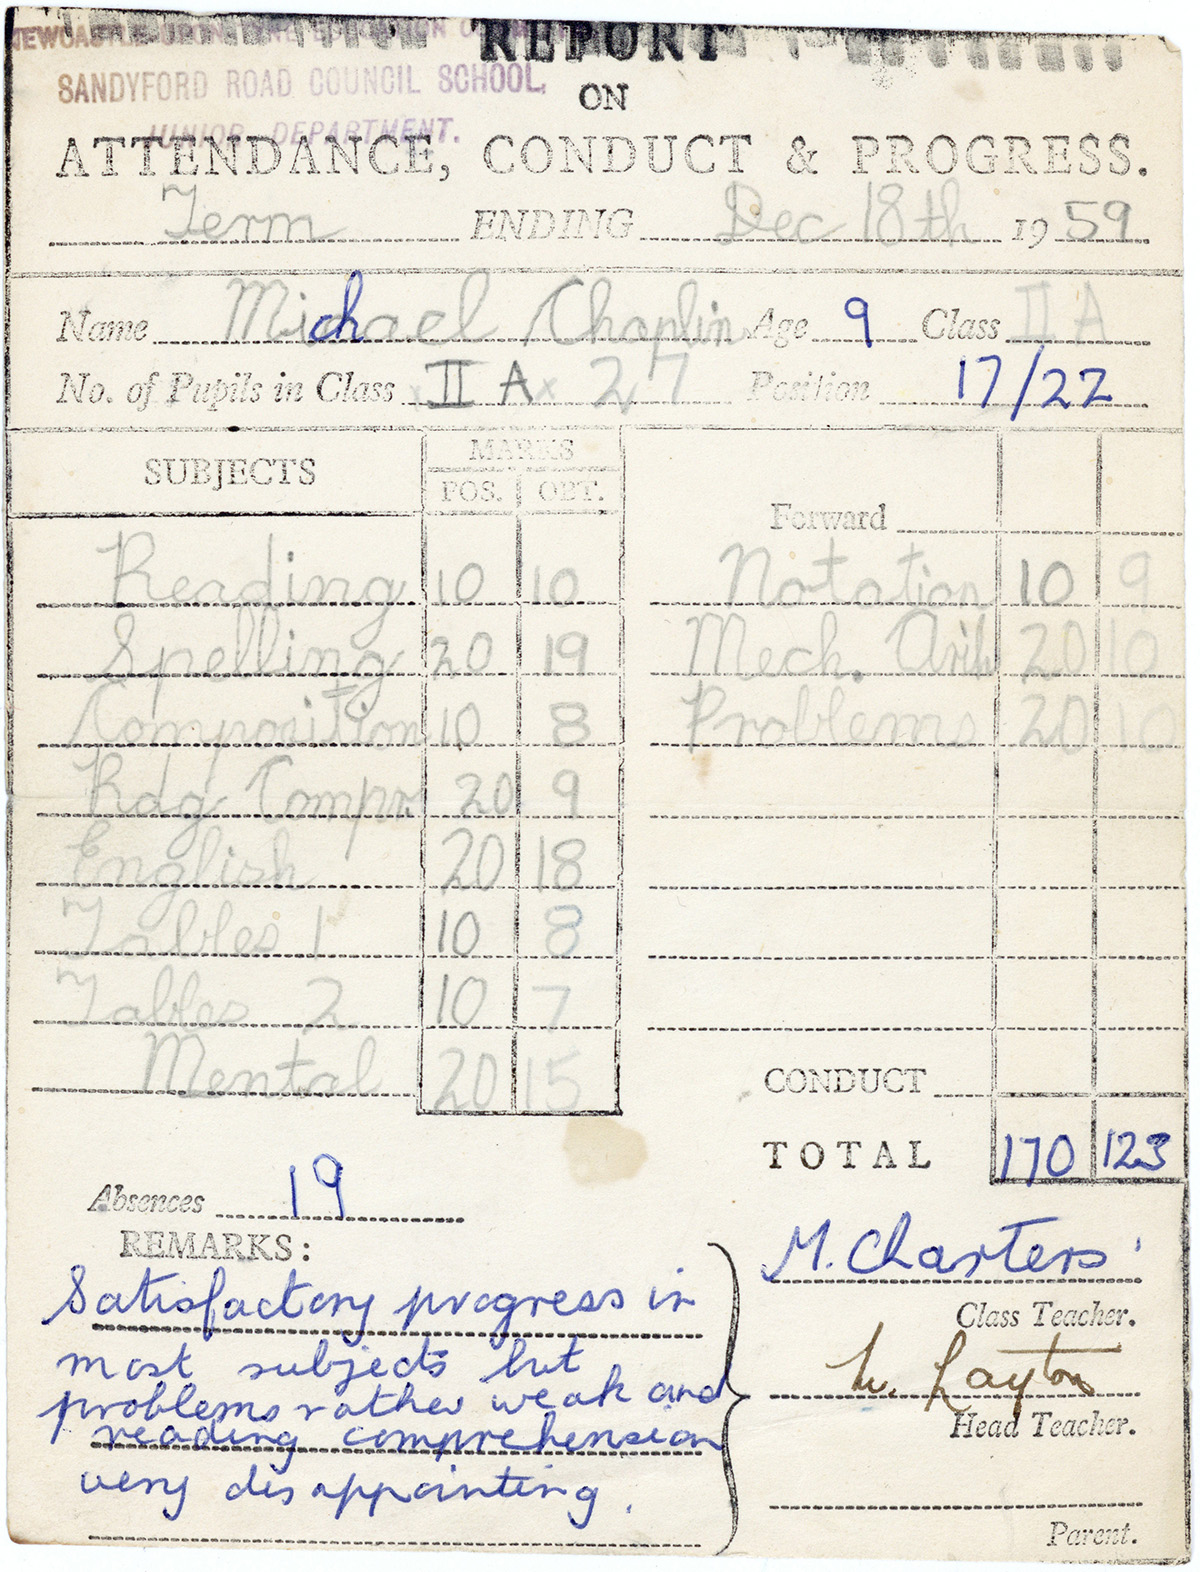 NEWCASTLE UPON TYNE EDUCATION
REPORT
SANDYFORD ROAD COUNCIL SCHOOL,
ON
JUNIOR DEPARTMENT.
ATTENDANCE, CONDUCT & PROGRESS.
Term ENDING Dec 18th 1959
Name Michael Chaplin Age 9 Class II A
No. of Pupils in Class II A 27 Position 17/22
SUBJECTS MARKS
POS. OBT.
Forward
Reading 10 10 Notation 10 9
Spelling 20 19 Mech. Arith 20 10
Composition 10 8 Problems 20 10
Rdg Compr 20 9
English 20 18
Tables 1 10 8
Tables 2 10 7
Mental 20 15
CONDUCT
TOTAL 170 123
Absences 19
REMARKS:
Satisfactory progress in
most subjects but
problems rather weak and
reading comprehension
very disappointing.
M. Charters
Class Teacher.
W. Layton
Head Teacher.
Parent.